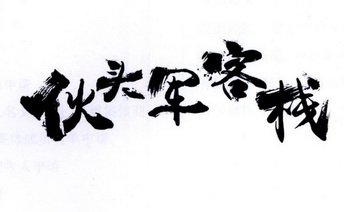 伙头军客栈